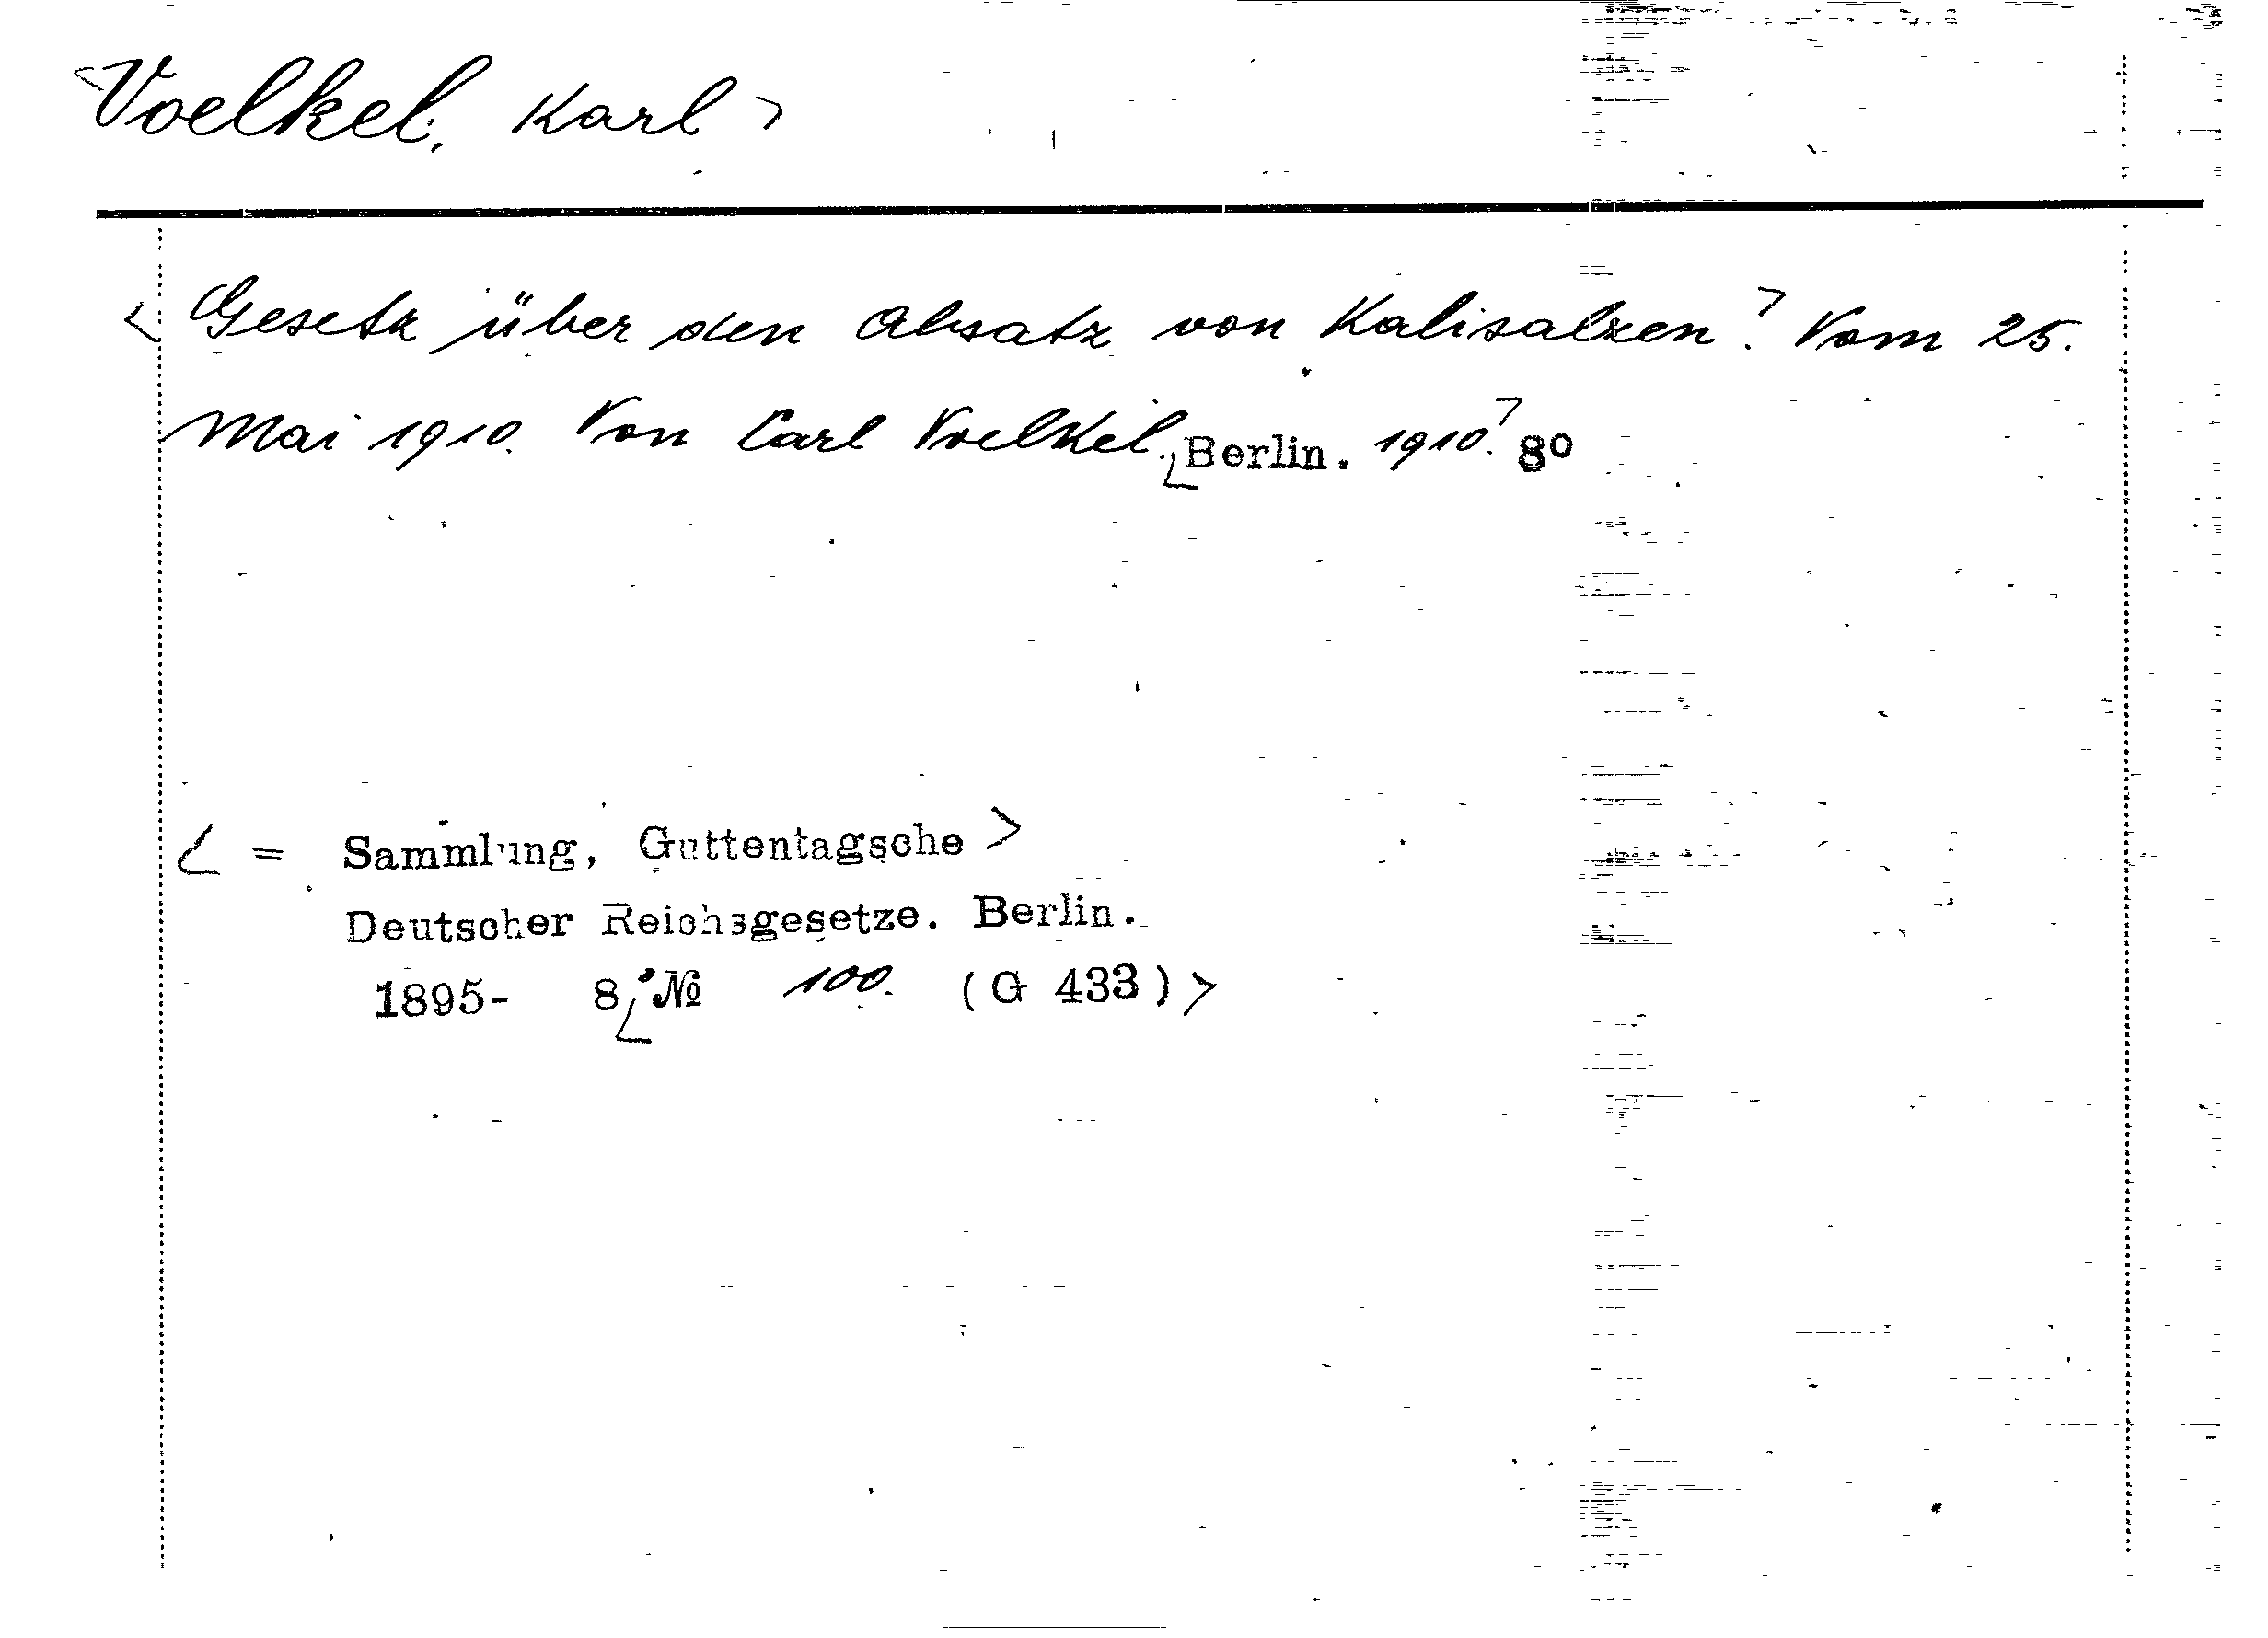 <Voelkel, Karl>
<Gesetz über den Absatz von Kalisalzen.> Vom 25.
Mai 1910. Von Carl Voelkel. <Berlin. 1910.> 8°
< = Sammlung, Guttentagsche >
Deutscher Reichsgesetze. Berlin.
1895- 8.< № 100. (G 433)>